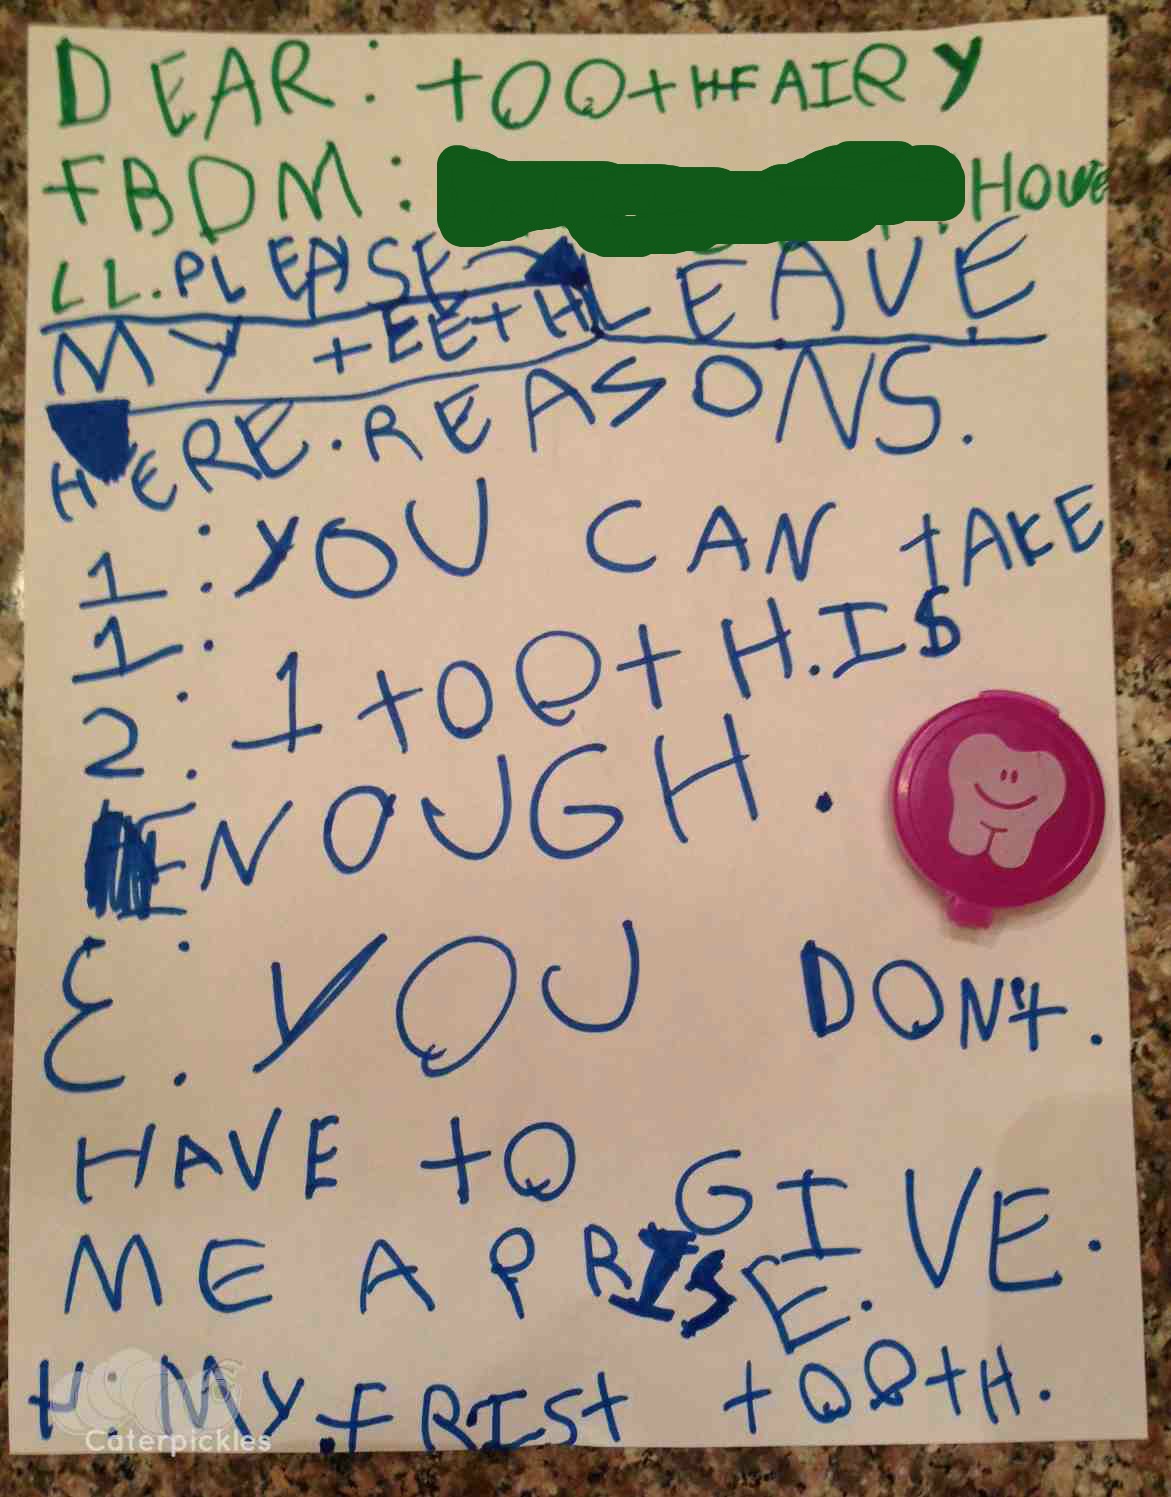 DEAR: tOOtHFAIRY
FBOM: HOWE
LL. PLEASE LEAVE
MY tEEtH
HERE. REASONS.
1: YOU CAN tAKE
1:
2: 1 tOOtH. IS
ENOUGH.
3: YOU DON't.
HAVE tO GIVE.
ME A PRISE.
4: MY. FRISt tOOtH.
Caterpickles